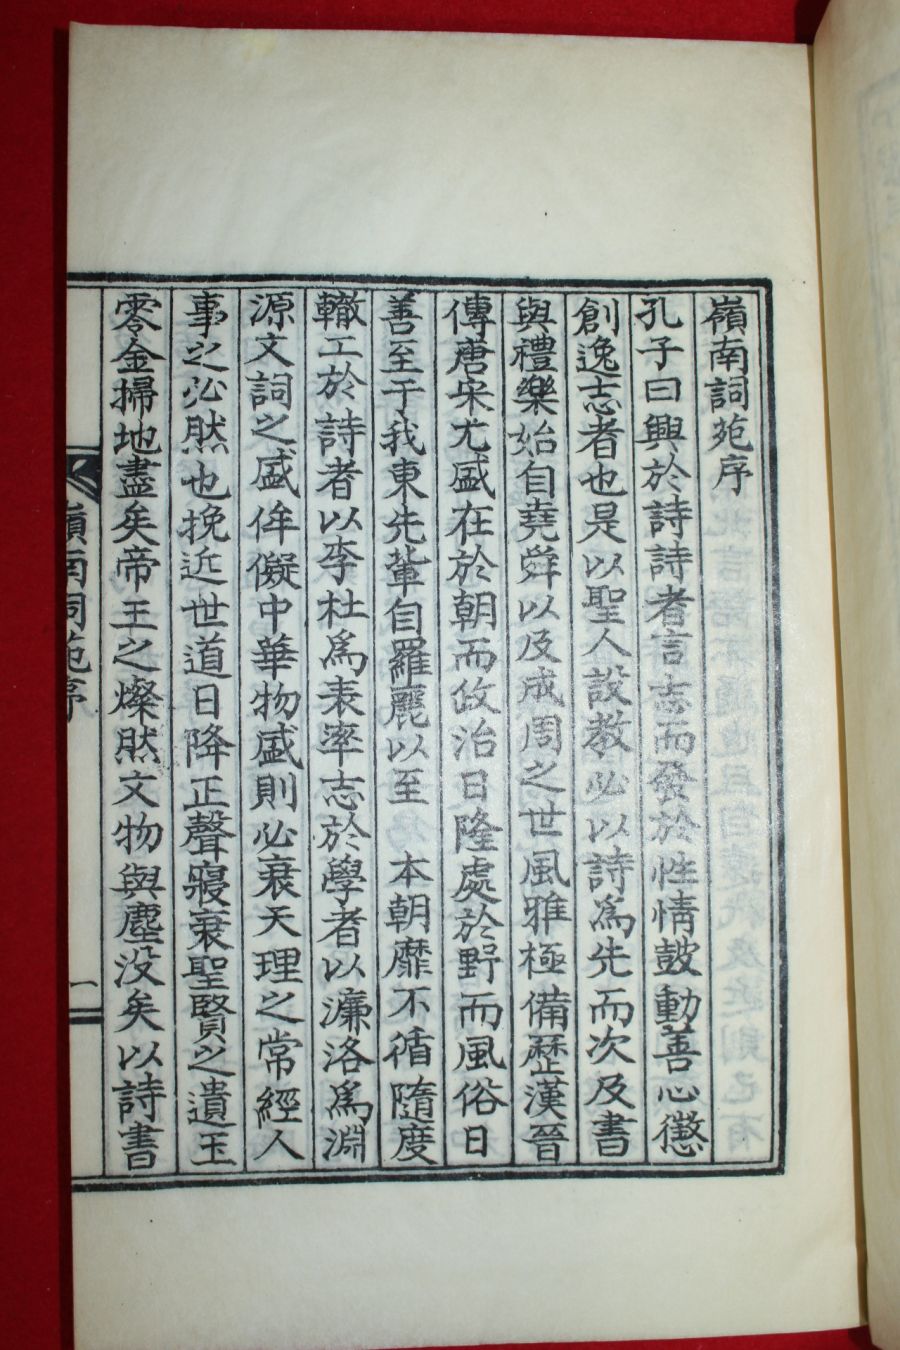 嶺南詞苑序
孔子曰興於詩詩者言志而發於性情鼓動善心懲
創逸志者也是以聖人設敎必以詩爲先而次及書
與禮樂始自堯舜以及成周之世風雅極備歷漢晉
傳唐宋尤盛在於朝而攸治日隆處於野而風俗日
善至于我東先輩自羅麗以至 本朝靡不循隨度
轍工於詩者以李杜爲表率志於學者以濂洛爲淵
源文詞之盛侔儗中華物盛則必衰天理之常經人
事之必然也挽近世道日降正聲寢衰聖賢之遺玉
零金掃地盡矣帝王之燦然文物與塵没矣以詩書
嶺南詞苑序 一